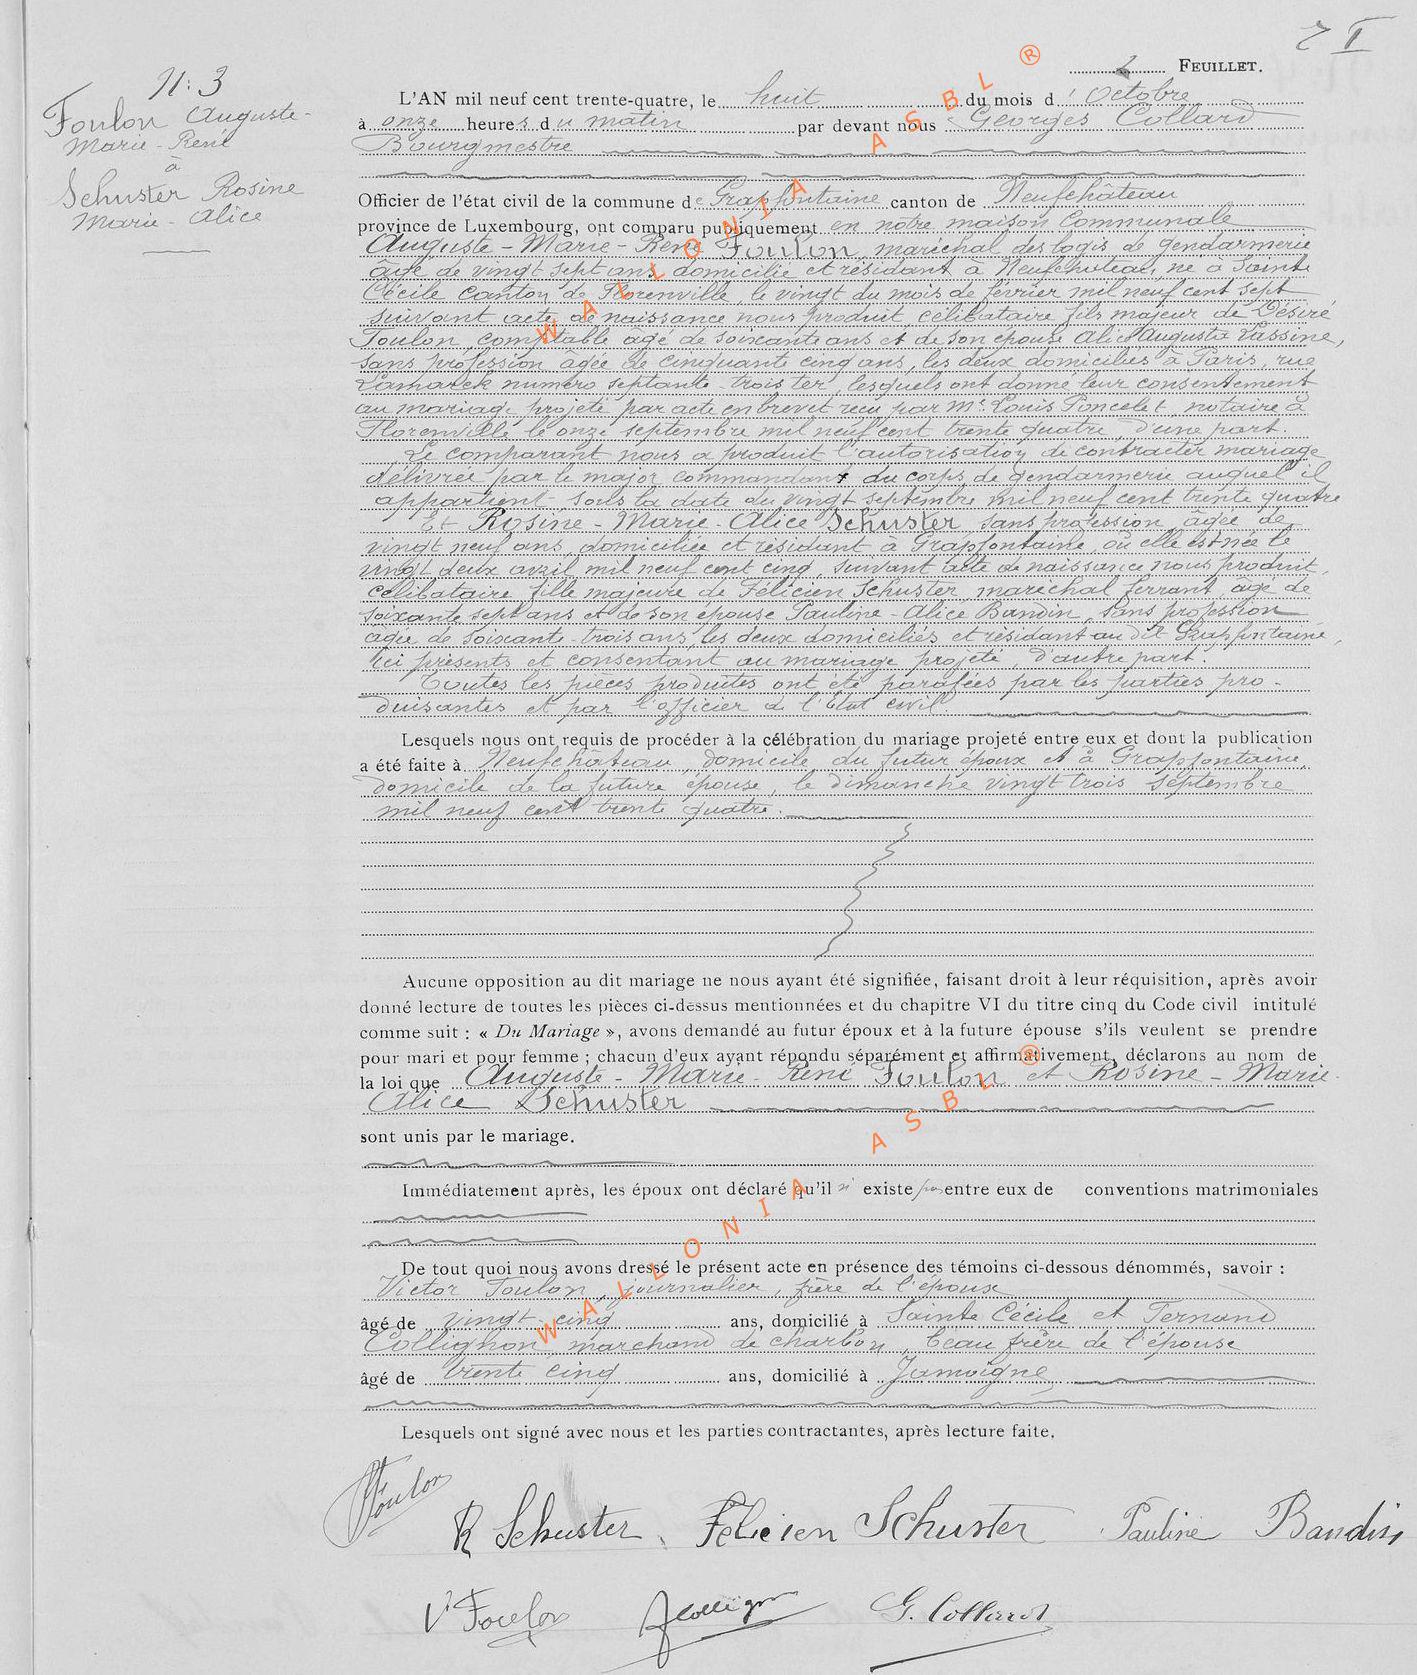 2 I
2 FEUILLET.
N: 3
Foulon Auguste-
Marie-René
à
Schuster Rosine
Marie-Alice
L'AN mil neuf cent trente-quatre, le huit du mois d'Octobre
à onze heures du matin par devant nous Georges Collard
Bourgmestre
Officier de l'état civil de la commune de Grapfontaine canton de Neufchâteau
province de Luxembourg, ont comparu publiquement en notre maison Communale
Auguste-Marie-René Foulon, maréchal des logis de gendarmerie
âgé de vingt sept ans domicilié et résidant à Neufchateau, né à Sainte
Cécile canton de Florenville, le vingt du mois de février mil neuf cent sept
suivant acte de naissance nous produit célibataire fils majeur de Désiré
Foulon, comptable âgé de soixante ans et de son épouse Alice Augusta Lassine,
sans profession âgée de cinquante cinq ans, les deux domiciliés à Paris, rue
Lamarck numéro septante-trois ter, lesquels ont donné leur consentement
au mariage projeté par acte en brevet reçu par Me Louis Poncelet, notaire à
Florenville le onze septembre mil neuf cent trente quatre, d'une part.
Le comparant nous a produit l'autorisation de contracter mariage
délivrée par le major commandant du corps de gendarmerie auquel il
appartient sous la date du vingt septembre mil neuf cent trente quatre
Et Rosine-Marie-Alice Schuster sans profession, âgée de
vingt neuf ans, domiciliée et résidant à Grapfontaine, où elle est née le
vingt deux avril mil neuf cent cinq, suivant acte de naissance nous produit,
célibataire fille majeure de Félicien Schuster maréchal ferrant, âgé de
soixante sept ans et de son épouse Pauline-Alice Bandin, sans profession
âgée de soixante-trois ans, les deux domiciliés et résidant au dit Grapfontaine,
ici présents et consentant au mariage projeté, d'autre part.
Toutes les pièces produites ont été parafées par les parties pro-
duisantes et par l'officier de l'Etat civil
Lesquels nous ont requis de procéder à la célébration du mariage projeté entre eux et dont la publication
a été faite à Neufchâteau, domicile du futur époux et à Grapfontaine,
domicile de la future épouse, le dimanche vingt trois septembre
mil neuf cent trente quatre.
Aucune opposition au dit mariage ne nous ayant été signifiée, faisant droit à leur réquisition, après avoir
donné lecture de toutes les pièces ci-dessus mentionnées et du chapitre VI du titre cinq du Code civil intitulé
comme suit : « Du Mariage », avons demandé au futur époux et à la future épouse s'ils veulent se prendre
pour mari et pour femme ; chacun d'eux ayant répondu séparément et affirmativement, déclarons au nom de
la loi que Auguste-Marie-René Foulon et Rosine-Marie-
Alice Schuster
sont unis par le mariage.
Immédiatement après, les époux ont déclaré qu'il n'existe pas entre eux de conventions matrimoniales
De tout quoi nous avons dressé le présent acte en présence des témoins ci-dessous dénommés, savoir :
Victor Foulon, journalier, frère de l'époux
âgé de vingt-cinq ans, domicilié à Sainte Cécile et Fernand
Collignon, marchand de charbon, beau frère de l'épouse
âgé de trente cinq ans, domicilié à Jamoigne
Lesquels ont signé avec nous et les parties contractantes, après lecture faite.
Foulon
R Schuster. Felicien Schuster Pauline Bandin
V. Foulon Collignon G. Collard
WALLONIA ASBL ®
WALLONIA ASBL ®